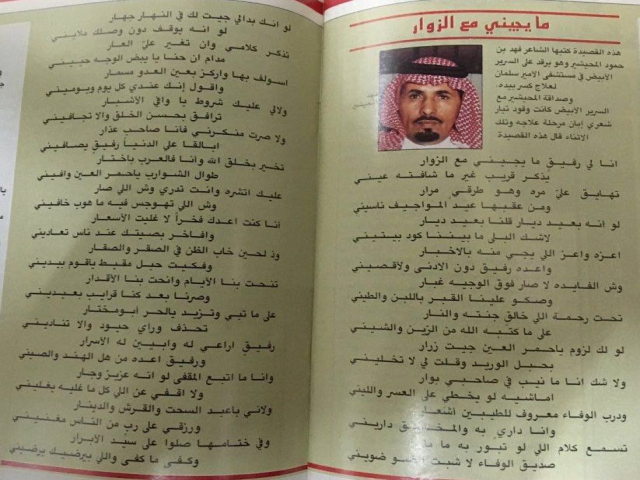 ما يجيني مع الزوار
هذه القصيدة كتبها الشاعر فهد بن
حمود المجيشير وهو يرقد على السرير
الأبيض في مستشفى الأمير سلمان
لعلاج كسر بيده.
وصداقة المجيشير مع
السرير الأبيض كانت وقود تيار
شعري إبان مرحلة علاجه وتلك
الأثناء قال هذه القصيدة
أنا لي رفيق ما يجيني مع الزوار
يذكر قريب غير ما شافته عيني
تهايق علي مره وهو طرقي مرار
ومن عقبها عيد المواجيف ناسيني
لو إنه بعيد ديار قلنا بعيد ديار
لا شك البلى ما بيننا كود بيتيني
اعزه واعز اللي يجي منه بالاخبار
واعده رفيق دون الادنى ولاقصيني
وش الفايده لا صار فوق الوجيه غبار
وصكو علينا القبر باللبن والطيني
تحت رحمة اللي خالق جنته والنار
على ما كتبه الله من الزين والشيني
لو لك لزوم ياحمر العين جيت زرار
بحبل الوريد وقلت لي لا تخليني
ولا شك أنا ما نيب في صاحبي بوار
اماشيه لو يخطي على العسر والليني
ودرب الوفاء معروف للطيبين أشعار
وانا داري به داريني
تسمع كلام اللي لو تبور به ما
صديق الوفاء لا شبت ضويني
لو انك بدالي جيت لك في النهار جهار
لو انه يوقف دون وصلك ملاييني
تذكر كلامي وان تغير علي العار
مدام ان حنا يا بيض الوجه حييني
اسولف بها واركز بعين العدو مسمار
واقول إنك عندي كل يوم ويوميني
ولالي عليك شروط يا وافي الأشبار
ترافق بحسن الخلق والا تجافيني
ولا صرت منكرني فأنا صاحب عذار
ابالقا على الدنيا رفيق يصافيني
تخير بخلق الله وانا فالعرب باختار
طوال الشوارب ياحمر العين وافيني
عليك اتشره وانت تدري وش اللي صار
وش اللي تهوجس فيه ما هوب خافيني
أنا كنت اعدك فخراً لا غليت الأسعار
وافاخر بصيتك عند ناس تعاديني
وذ لحين خاب الظن في الصقر والصقار
وفكيت حبل مقيظ باقوم بيديني
تنحت بنا الأيام وانحت بنا الأقدار
وصرنا بعد كنا قرايب بعيديني
على ما تبي وتزيد يالحر ابومختار
تحذف وراي حيود والا تناديني
رفيق اراعي له وابيين له الأسرار
ورفيق اعده من هل الهند والصيني
وانا ما اتبع المقفي لو انه عزيز وجار
ولا اقفي عن اللي كل ما غليه يغليني
ولاني باعبد السحت والقرش والدينار
ورزقي على رب من الناس مغنيني
وفي ختامها صلوا على سيد الابرار
وكفى ما كفى واللي يبرضيك يرضيني